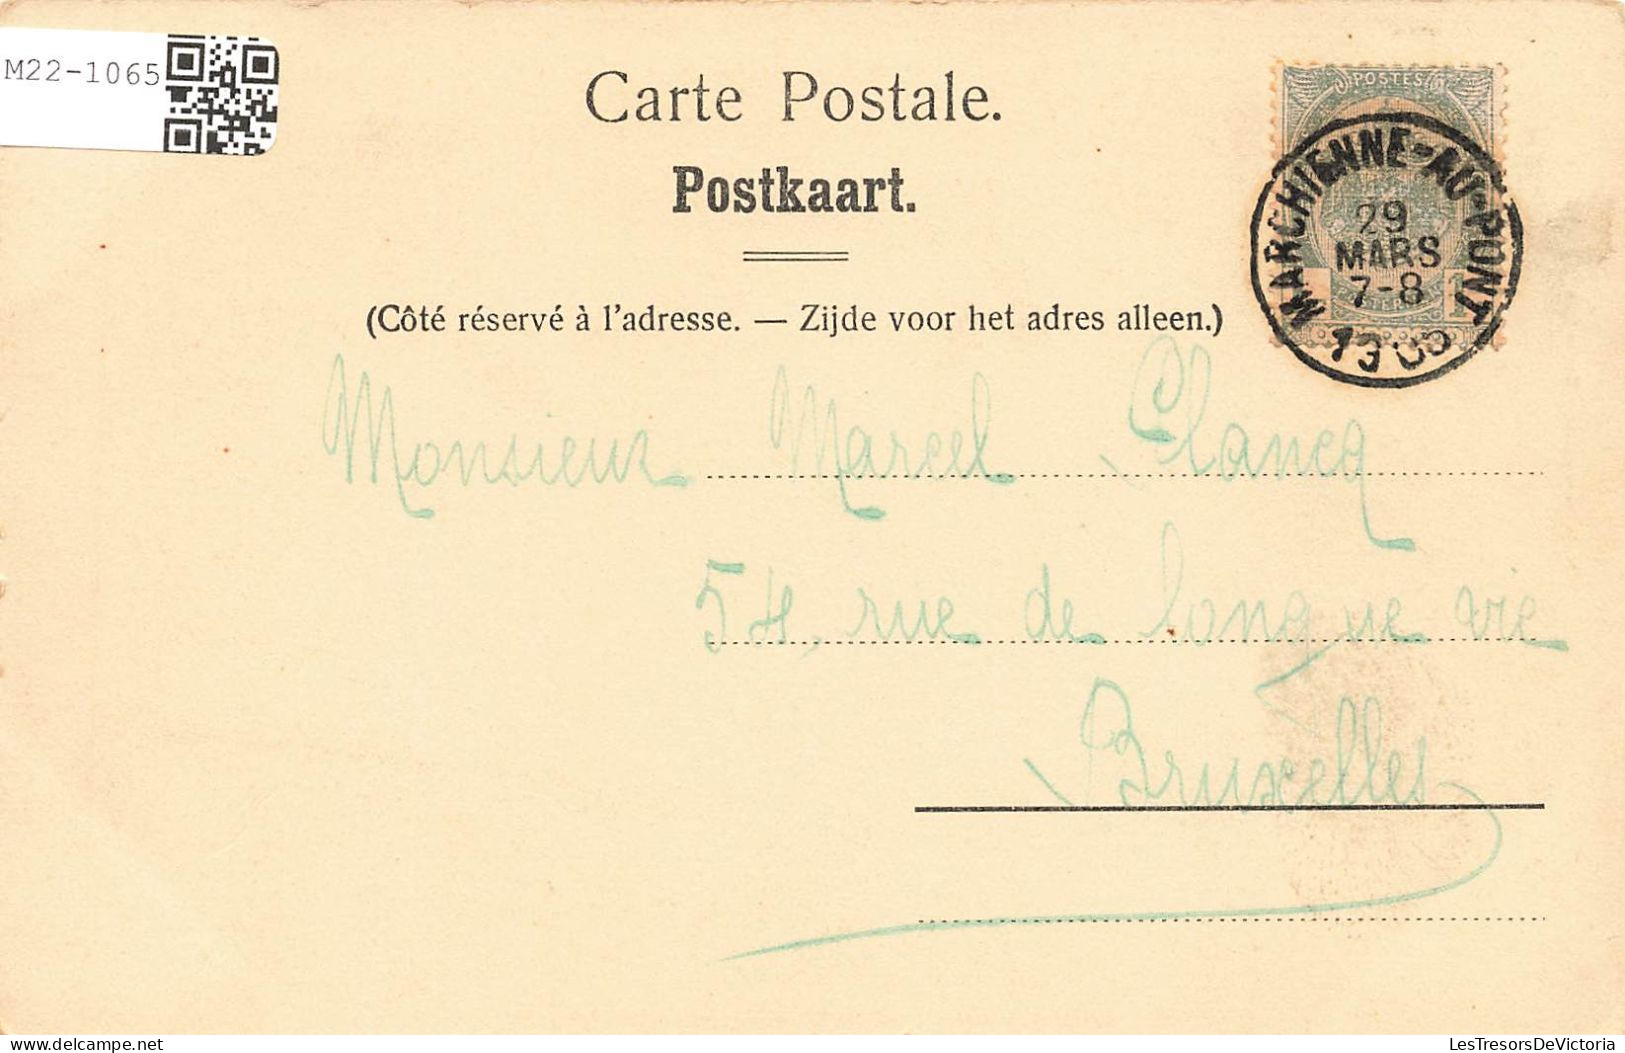 M22-1065
Carte Postale.
Postkaart.
(Côté réservé à l'adresse. — Zijde voor het adres alleen.)
POSTES
MARCHIENNE-AU-PONT
29
MARS
7-8
Monsieur Marcel Clancq
54, rue de longue vie
Bruxelles
Delcampe.net
LesTresorsDeVictoria